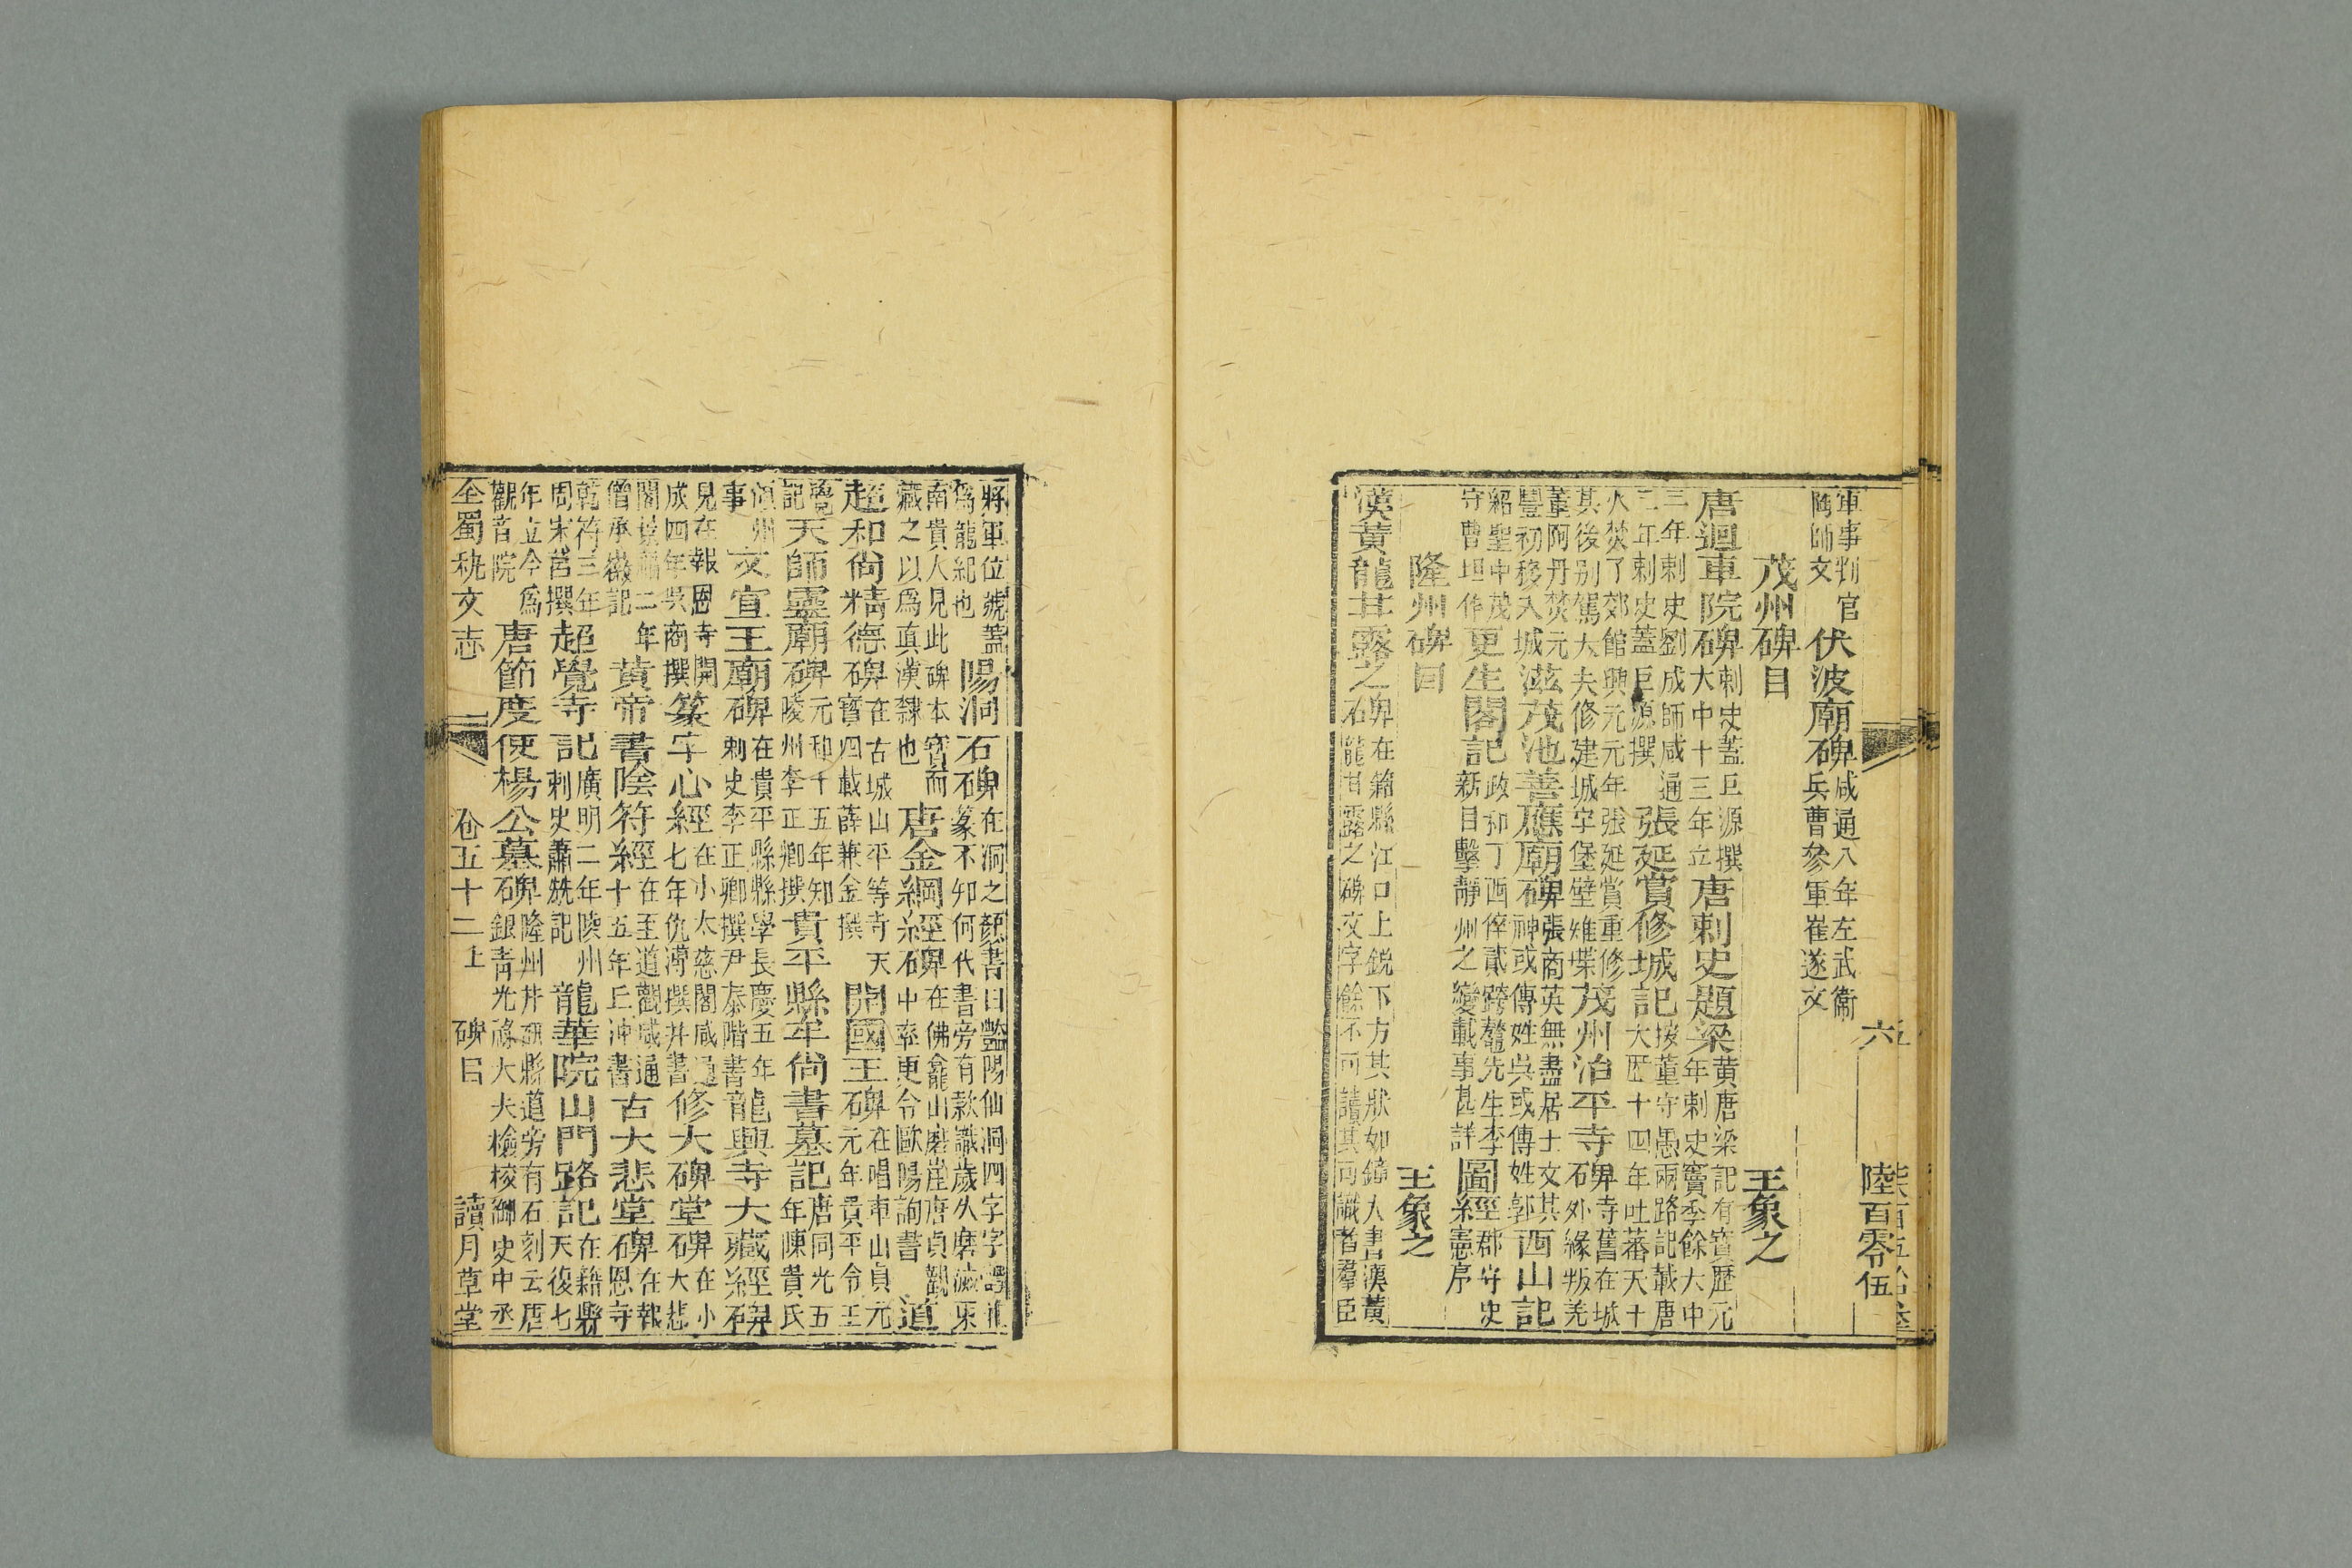 軍事判官
陶師文
伏波廟碑
咸通八年左武衛
兵曹參軍崔遂文
茂州碑目
王象之
唐迴車院碑
刺史蓋巨源撰
大中十三年立
唐刺史題梁
黄唐梁記有寶歷元
年刺史竇季餘大中
三年刺史劉成師咸通
二年刺史蓋巨源撰
張延賞修城記
按董守愚兩路記載唐
大歷十四年吐蕃天十
火焚了郊館興元元年張延賞重修
其後别駕大夫修建城字堡壁雉堞
茂州治平寺碑
寺舊在城
石外緣叛羌
董阿丹焚元
豐初移入城
滋茂池善應廟碑
張商英無盡居士文其
神或傳姓吳或傳姓郭
西山記
紹聖中茂
守曹坦作
更生閣記
政和丁酉倅貳跨鼇先生李
新目擊靜州之變載事甚詳
圖經
郡守史
憲序
隆州碑目
王象之
漢黄龍甘露之碑
在籍縣江口上銳下方其狀如鐘大書漢黄
石龍甘露之碑文字餘不可讀其可識者羣臣
六
陸百零伍
將軍位號蓋
爲龍紀也
陽洞石碑
在洞之顏書曰豔陽仙洞四字字
篆不知何代書旁有款識歲久磨滅來
南貴人見此碑本寶而
藏之以爲真漢隸也
唐金綱經碑
在佛龕山磨崖唐貞觀
石中率更令歐陽詢書
道
超和尚精德碑
在古城山平等寺天
寶四載薛兼金撰
開國王碑
在唱車山貞元
元年貴平令王
覺
記
天師靈廟碑
元和十五年知
陵州李正卿撰
貴平縣牟尚書墓記
唐同光五
年陳貴氏
州
事
文宣王廟碑
在貴平縣縣學長慶五年
刺史李正卿撰尹泰階書
龍興寺大藏經碑
見在報恩寺開
成四年吳商撰
篆字心經
在小太慈閣咸通
七年仇濤撰并書
修大碑堂碑
在小
大悲
閣景福二年
僧承徽記
黄帝書陰符經
在至道觀咸通
十五年丘沖書
古大悲堂碑
在報
恩寺
乾符三年
周宋莒撰
超覺寺記
廣明二年陵州
刺史蕭䂀記
龍華院山門路記
在籍縣
天復七
年立今爲
觀音院
唐節度使楊公墓碑
隆州井研縣道旁有石刻云唐
銀青光祿大夫檢校御史中丞
全蜀秇文志
卷五十二上
碑目
讀月草堂